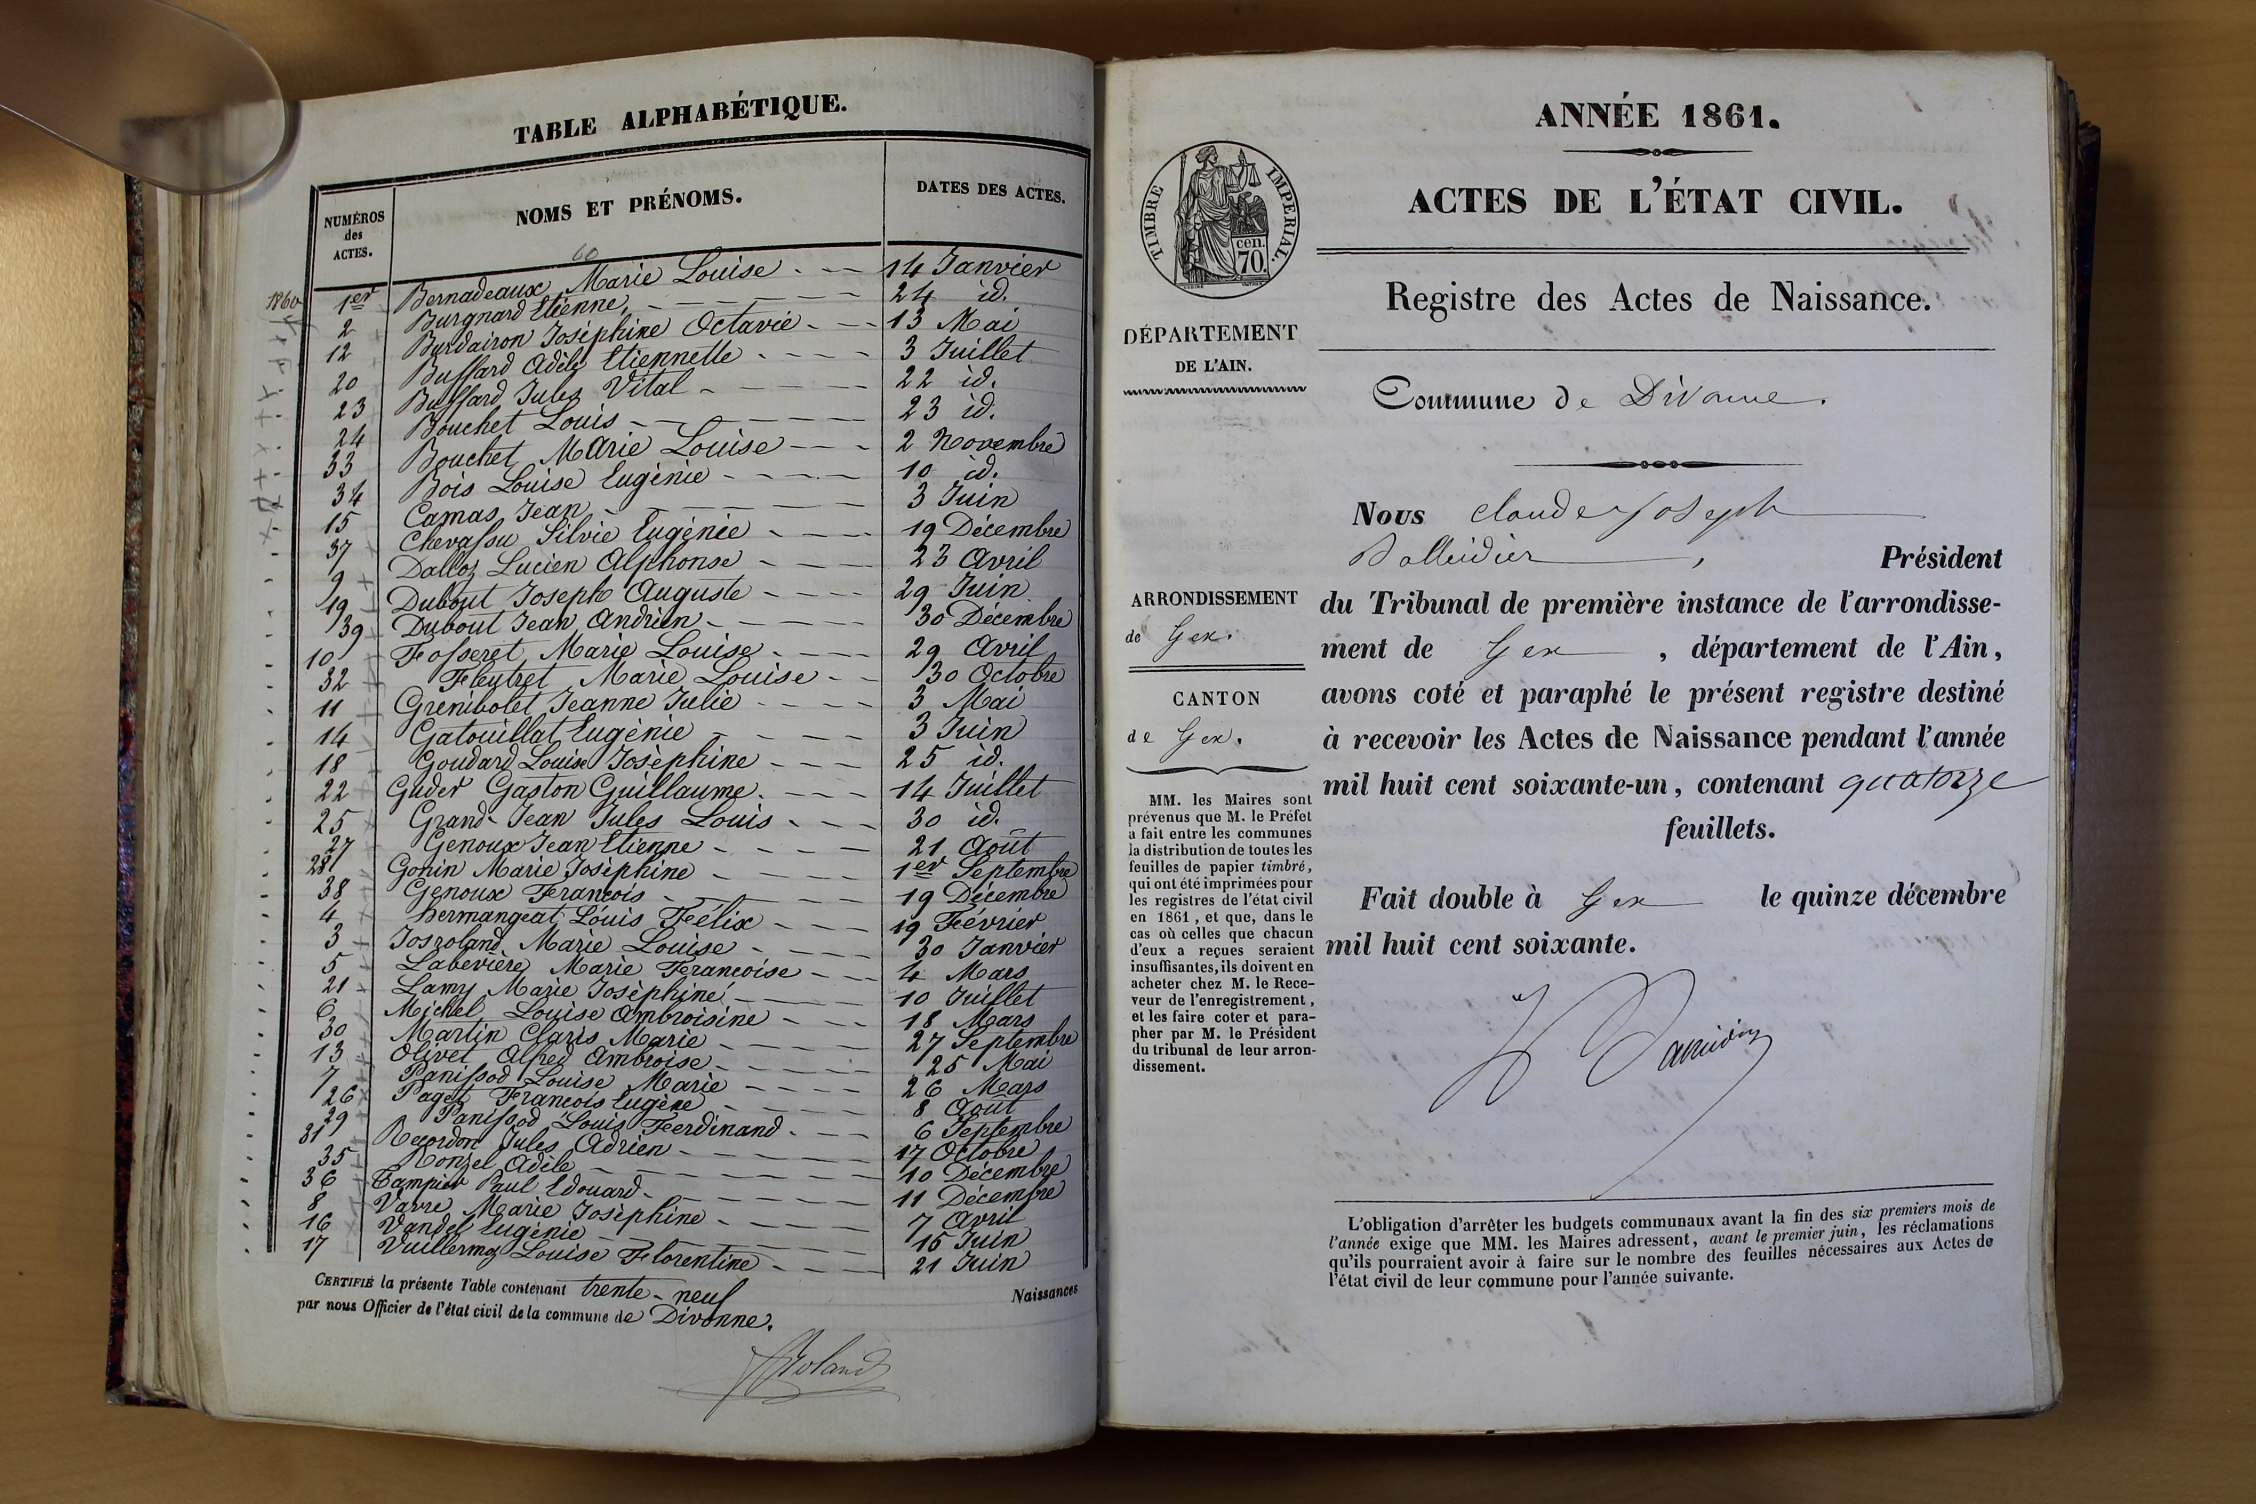 TABLE ALPHABÉTIQUE.
NUMÉROS des ACTES.
NOMS ET PRÉNOMS.
DATES DES ACTES.
60
1860
1er Bernadeaux Marie Louise 14 Janvier
2 Burgnard Etienne, 24 id.
12 Burdairon Josèphine Octavie 13 Mai
20 Buffard Adèle Etiennette 3 Juillet
23 Buffard Jules Vital 22 id.
24 Bouchet Louis 23 id.
33 Bouchet Marie Louise 2 Novembre
34 Bois Louise Eugènie 10 id.
15 Camas Jean 3 Juin
37 Chevassu Silvie Eugénie 19 Décembre
9 Dalloz Lucien Alphonse 23 Avril
19 Dubout Joseph Auguste 29 Juin
39 Dubout Jean Andrien 30 Décembre
10 Fosseret Marie Louise 29 Avril
32 Fleutret Marie Louise 30 Octobre
11 Grenibolet Jeanne Julie 3 Mai
14 Gatouillat Eugènie 3 Juin
18 Goudard Louise Josèphine 25 id.
22 Guder Gaston Guillaume 14 Juillet
25 Grand-Jean Jules Louis 30 id.
27 Genoux Jean Etienne 21 Août
28 Gonin Marie Josèphine 1er Septembre
38 Genoux Francois 19 Décembre
4 hermangeat Louis Félix 19 Février
3 Josroland Marie Louise 30 Janvier
5 Labevière Marie Francoise 4 Mars
21 Lamy Marie Josèphine 10 Juillet
6 Michel Louise Ambroisine 18 Mars
30 Martin Claris Marie 27 Septembre
13 Olivet Alfred Ambroise 25 Mai
7 Panissod Louise Marie 26 Mars
26 Paget Francois Eugène 8 Août
29 Panissod Louis Ferdinand 6 Septembre
31 Recordon Jules Adrien 17 Octobre
35 Ronzel Adèle 10 Décembre
36 Tampier Paul Edouard 11 Décembre
8 Varre Marie Josèphine 7 Avril
16 Vandel Eugènie 15 Juin
17 Vuillermoz Louise Florentine 21 Juin
CERTIFIÉ la présente Table contenant trente-neuf Naissances
par nous Officier de l'état civil de la commune de Divonne.
Roland
ANNÉE 1861.
ACTES DE L'ÉTAT CIVIL.
TIMBRE IMPERIAL.
cen.
70.
Registre des Actes de Naissance.
DÉPARTEMENT
DE L'AIN.
Commune de Divonne.
ARRONDISSEMENT
de Gex.
CANTON
de Gex.
MM. les Maires sont
prévenus que M. le Préfet
a fait entre les communes
la distribution de toutes les
feuilles de papier timbré,
qui ont été imprimées pour
les registres de l'état civil
en 1861, et que, dans le
cas où celles que chacun
d'eux a reçues seraient
insuffisantes, ils doivent en
acheter chez M. le Rece-
veur de l'enregistrement,
et les faire coter et para-
pher par M. le Président
du tribunal de leur arron-
dissement.
Nous Claude Joseph
, Président
du Tribunal de première instance de l'arrondisse-
ment de Gex, département de l'Ain,
avons coté et paraphé le présent registre destiné
à recevoir les Actes de Naissance pendant l'année
mil huit cent soixante-un, contenant quatorze
feuillets.
Fait double à Gex le quinze décembre
mil huit cent soixante.
L'obligation d'arrêter les budgets communaux avant la fin des six premiers mois de
l'année exige que MM. les Maires adressent, avant le premier juin, les réclamations
qu'ils pourraient avoir à faire sur le nombre des feuilles nécessaires aux Actes de
l'état civil de leur commune pour l'année suivante.